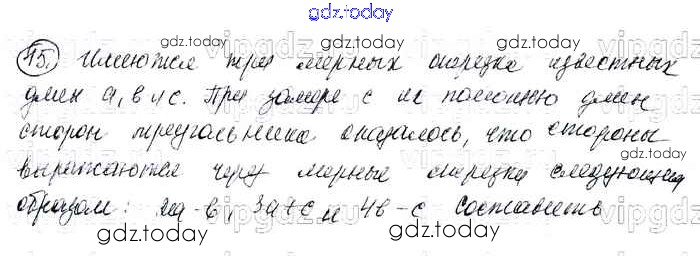 gdz.today
15. Имеются три мерных отрезка известных
gdz.today
длин a, b и c. При замере с их помощью длин
gdz.today
сторон треугольника оказалось, что стороны
gdz.today
выражаются через мерные отрезки следующим
gdz.today
образом: 2a-b, 3a+c и 4b-c Составить
gdz.today